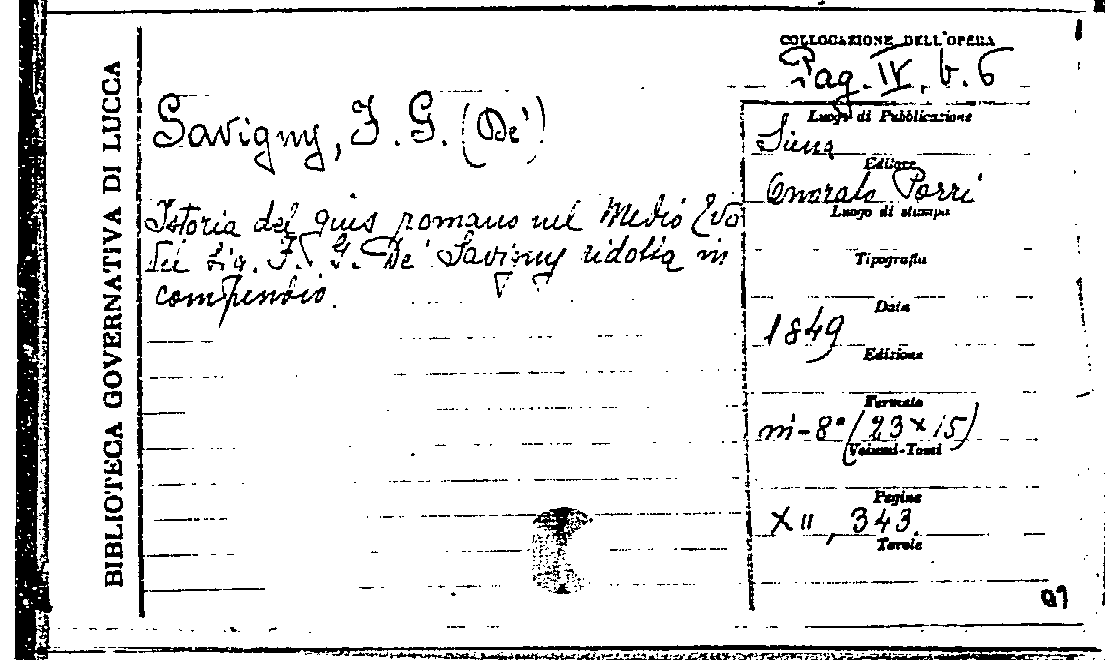 BIBLIOTECA GOVERNATIVA DI LUCCA
COLLOCAZIONE DELL'OPERA
Pag. IV. b. 6
Savigny, F. G. (De')
Istoria del gius romano nel Medio Evo
del Sig. F. G. De' Savigny ridotta in
compendio.
Luogo di Pubblicazione
Siena
Editore
Onorato Porri
Luogo di stampa
Tipografia
Data
1849
Edizione
Formato
in-8° (23 x 15)
Volumi-Tomi
Pagine
XII, 343
Tavole